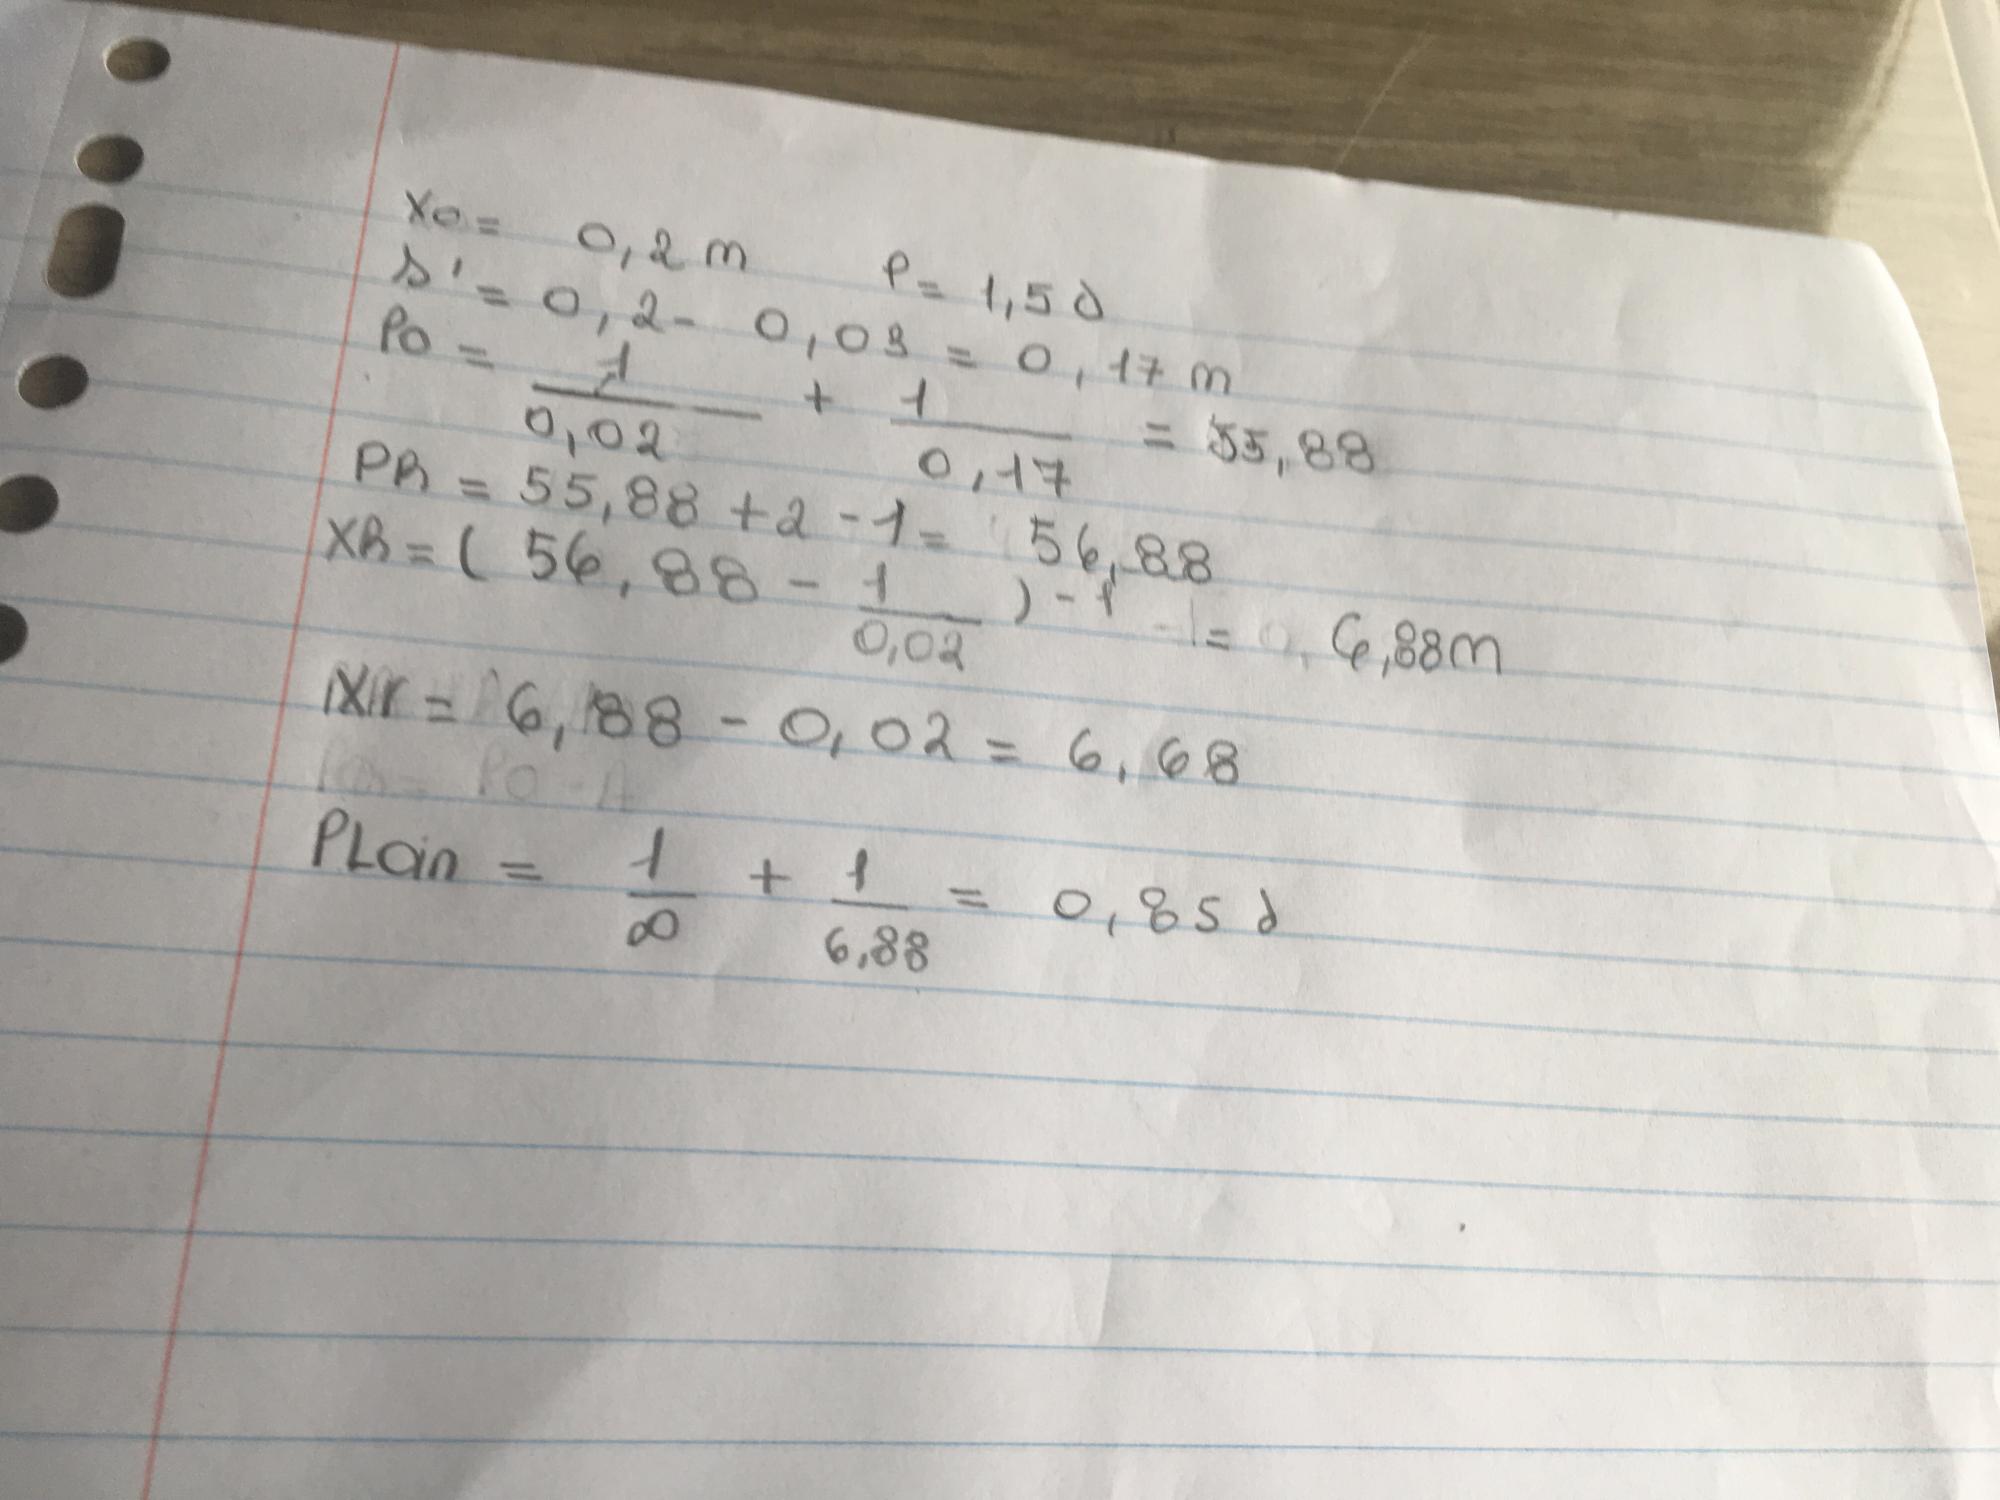 x0 = 0,2 m P = 1,5 δ
s' = 0,2 - 0,03 = 0,17 m
P0 = 1/0,02 + 1/0,17 = 55,88
PR = 55,88 + 2 - 1 = 56,88
XR = ( 56,88 - 1/0,02 ) - 1 = 6,88m
Xr = 6,88 - 0,02 = 6,68
PLoin = 1/∞ + 1/6,88 = 0,85 δ